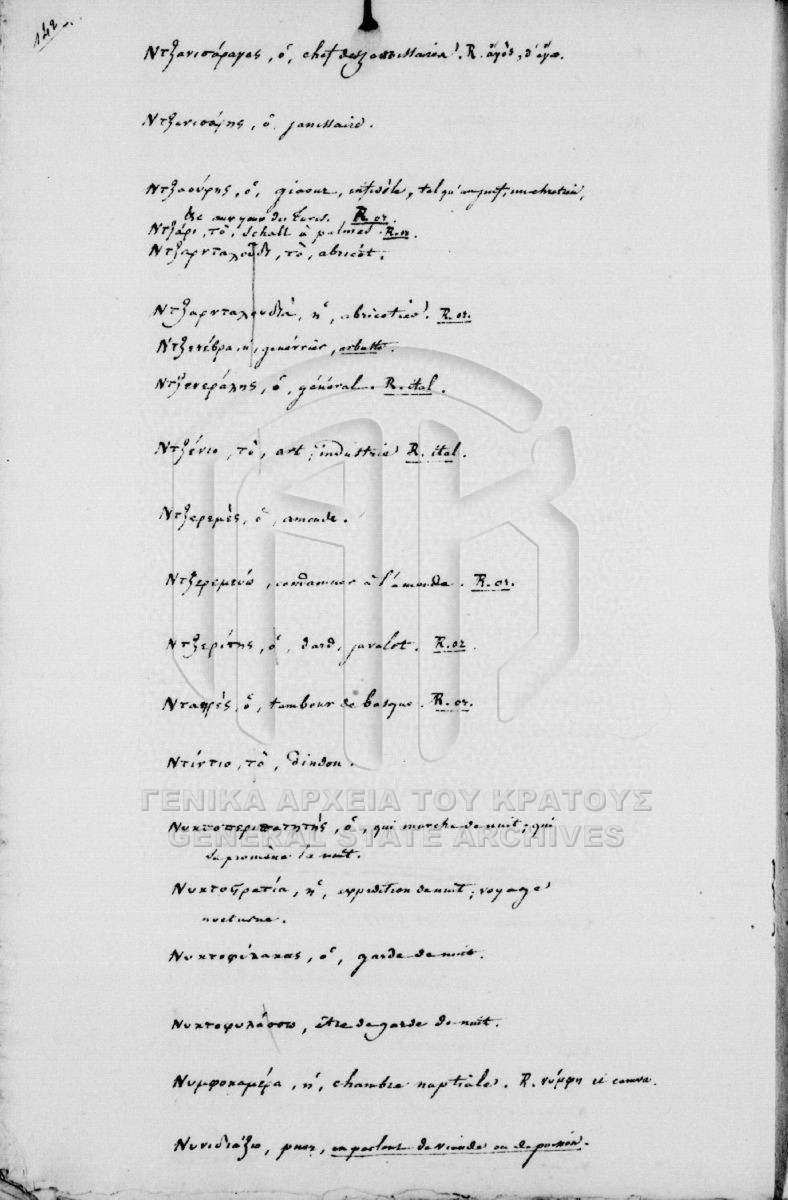 142.
Ντζανισάραγας, ὁ, chef des janissaires. R. ἀγὸς,
Ντζανισάρης, ὁ, janissaire.
Ντζαούρης, ὁ, giaour, infidèle, tel qu'un juif, un chretien,
aux yeux des turcs. R. or.
Ντζάρι, τὸ, schall à palmes. R. or.
Ντζαρνταλούδι, τὸ, abricot.
Ντζαρνταλουδιά, ἡ, abricotier. R. or.
Ντζενέβρα, ἡ, genévrier, arbuste.
Ντζενεράλης, ὁ, général. R. ital.
Ντζένιο, τὸ, art, industrie R. ital.
Ντζερεμὲς, ὁ, amende.
Ντζερεμεύω, condamner à l'amende. R. or.
Ντζερίτης, ὁ, dard, javelot. R. or.
Νταϊρὲς, ὁ, tambour de basque. R. or.
Ντίντιο, τὸ, dindon.
ΓΕΝΙΚΑ ΑΡΧΕΙΑ ΤΟΥ ΚΡΑΤΟΥΣ
GENERAL STATE ARCHIVES
Νυκτοπεριπατητής, ὁ, qui marche de nuit; qui
se promène la nuit.
Νυκτοστρατία, ἡ, expedition de nuit; voyage
nocturne.
Νυκτοφύλακας, ὁ, garde de nuit.
Νυκτοφυλάσσω, être de garde de nuit.
Νυμφοκαμέρα, ἡ, chambre nuptiale. R. νύμφη et camera.
Νυνιδιάζω, puer, en parlant de viande ou de poisson.